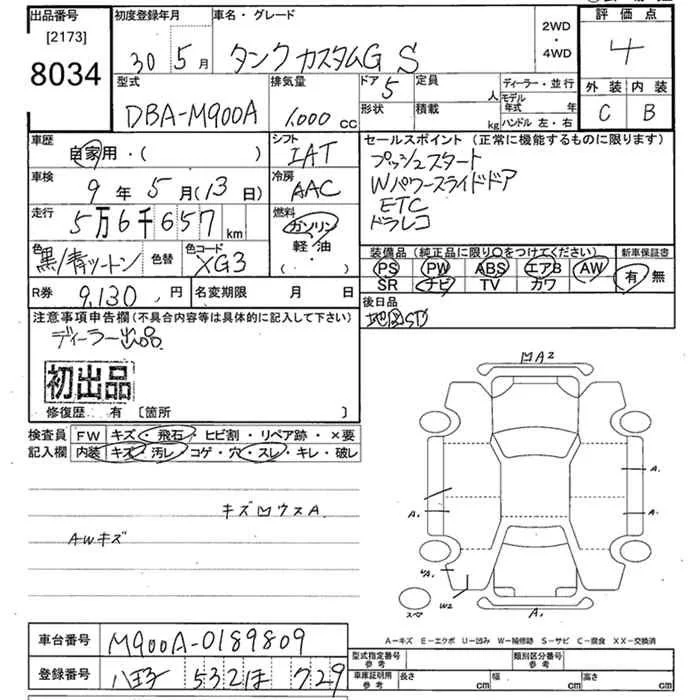 出品番号 [2173] 8034
初度登録年月 30 5月
車名・グレード タンク カスタムG S
2WD・4WD
評価点 4
外装 C 内装 B
型式 DBA-M900A
排気量 1,000 cc
ドア 5 形状
定員 人 積載 kg
ディーラー・並行
モデル年式 年
ハンドル 左・右
車歴 自家用・( )
シフト IAT
車検 9年5月(13日)
冷房 AAC
走行 5万6千657 km
燃料 ガソリン 軽油・( ・ )
色 黒/青ツートン 色替 色コード XG3
セールスポイント (正常に機能するものに限ります)
プッシュスタート
Wパワースライドドア
ETC
ドラレコ
装備品 (純正品に限り○をつけてください) 新車保証書
PS PW ABS エアB AW 有・無
SR ナビ TV カワ
R券 9,130円 名変期限 月 日
後日品
地図SD
注意事項申告欄(不具合内容等は具体的に記入して下さい)
ディーラー出品
初出品
修復歴 有 [箇所 ]
検査員記入欄 FW キズ・飛石・ヒビ割・リペア跡・×要
内装 キズ・汚レ・コゲ・穴・スレ・キレ・破レ
AWキズ
MA2
A.
A.
A.
W2
A.
スペア
A-キズ E-エクボ U-凹み W-補修跡 S-サビ C-腐食 XX-交換済
車台番号 M900A-0189809
登録番号 八王子 532 ほ 729
型式指定番号 参考 類別区分番号 参考
車庫証明用 参考 長さ cm 幅 cm 高さ cm